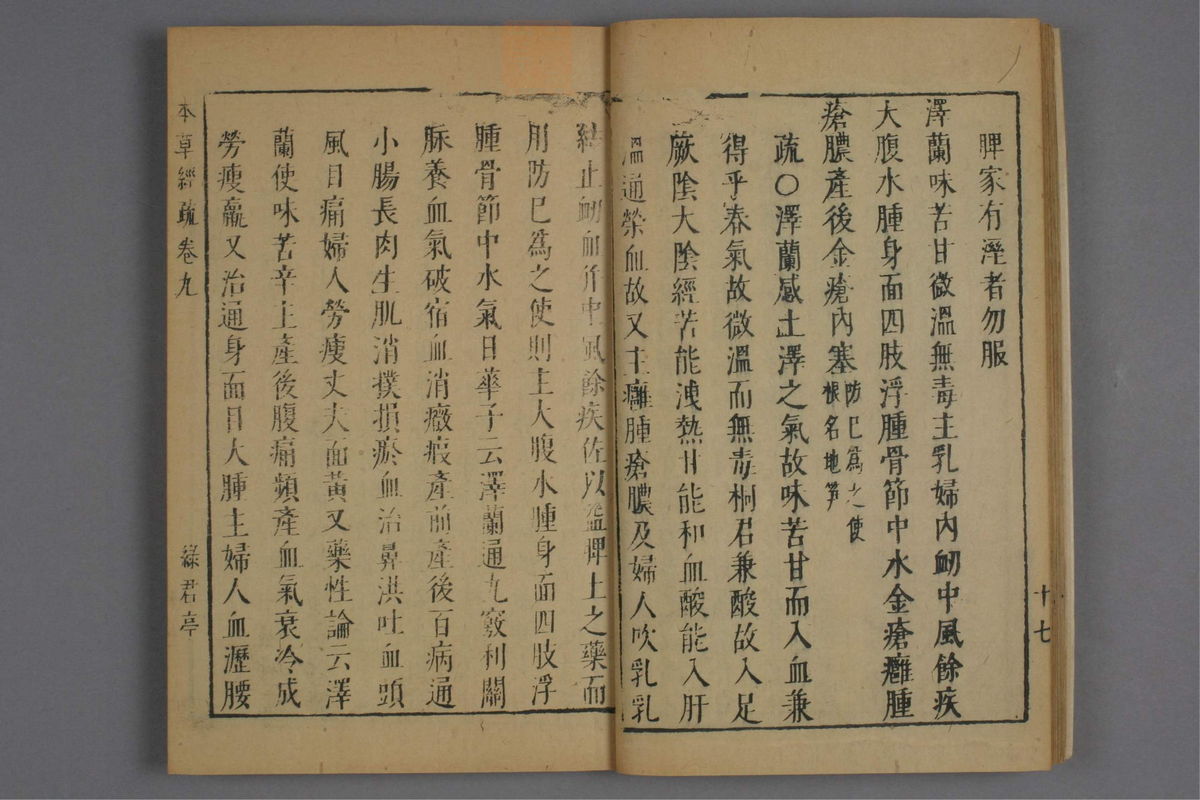 十七
脾家有溼者勿服
澤蘭味苦甘微溫無毒主乳婦內衂中風餘疾
大腹水腫身面四肢浮腫骨節中水金瘡癰腫
瘡膿產後金瘡內塞防已爲之使根名地笋
疏○澤蘭感土澤之氣故味苦甘而入血兼
得乎春氣故微溫而無毒桐君兼酸故入足
厥陰大陰經苦能洩熱甘能和血酸能入肝
溫通榮血故又主癰腫瘡膿及婦人吹乳乳
結止衂血治中風餘疾佐以益脾土之藥而
用防已爲之使則主大腹水腫身面四肢浮
腫骨節中水氣日華子云澤蘭通九竅利關
脉養血氣破宿血消癥瘕產前產後百病通
小腸長肉生肌消撲損瘀血治鼻洪吐血頭
風目痛婦人勞瘦丈夫面黃又藥性論云澤
蘭使味苦辛主產後腹痛頻產血氣衰冷成
勞瘦羸又治通身面目大腫主婦人血瀝腰
本草經疏卷九
綠君亭